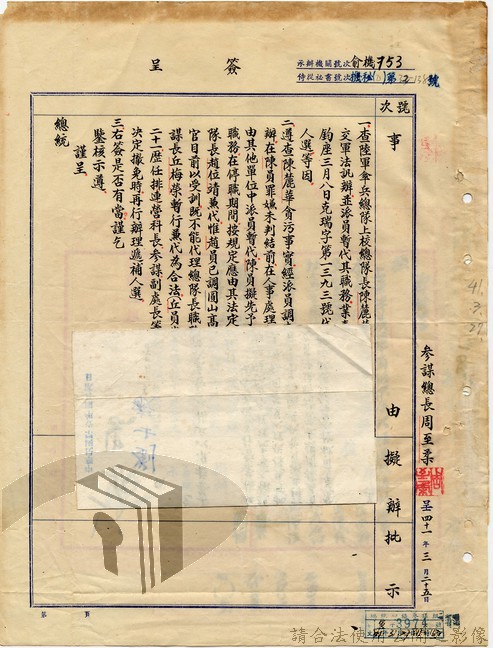 簽呈
承辦機關號次俞機753
侍從祕書號次
號
號次
事由
擬辦
批示
一、查陸軍傘兵總隊上校總隊長陳麓華
交軍法訊辦並派員暫代其職務業奉
鈞座三月八日克瑞字第一三九三號代
人選等因
二、遵查陳麓華貪污事實經派員調
辦在陳員罪嫌未判結前在人事處理
由其他單位中派員暫代陳員擬先予
職務在停職期間按規定應由其法定
隊長趙位靖兼代惟趙員已調圓山高
官目前以受訓既不能代理總隊長職
謀長丘梅榮暫行兼代為合法(丘員
二十一歷任排連營科長參謀副處長等
決定撤免時再行辦理遞補人選
三、右簽是否有當謹乞
鑒核示遵
謹呈
總統
參謀總長周至柔
呈四十一年三月二十五日
41.3.27.
第 頁
3974
請合法使用公開之影像